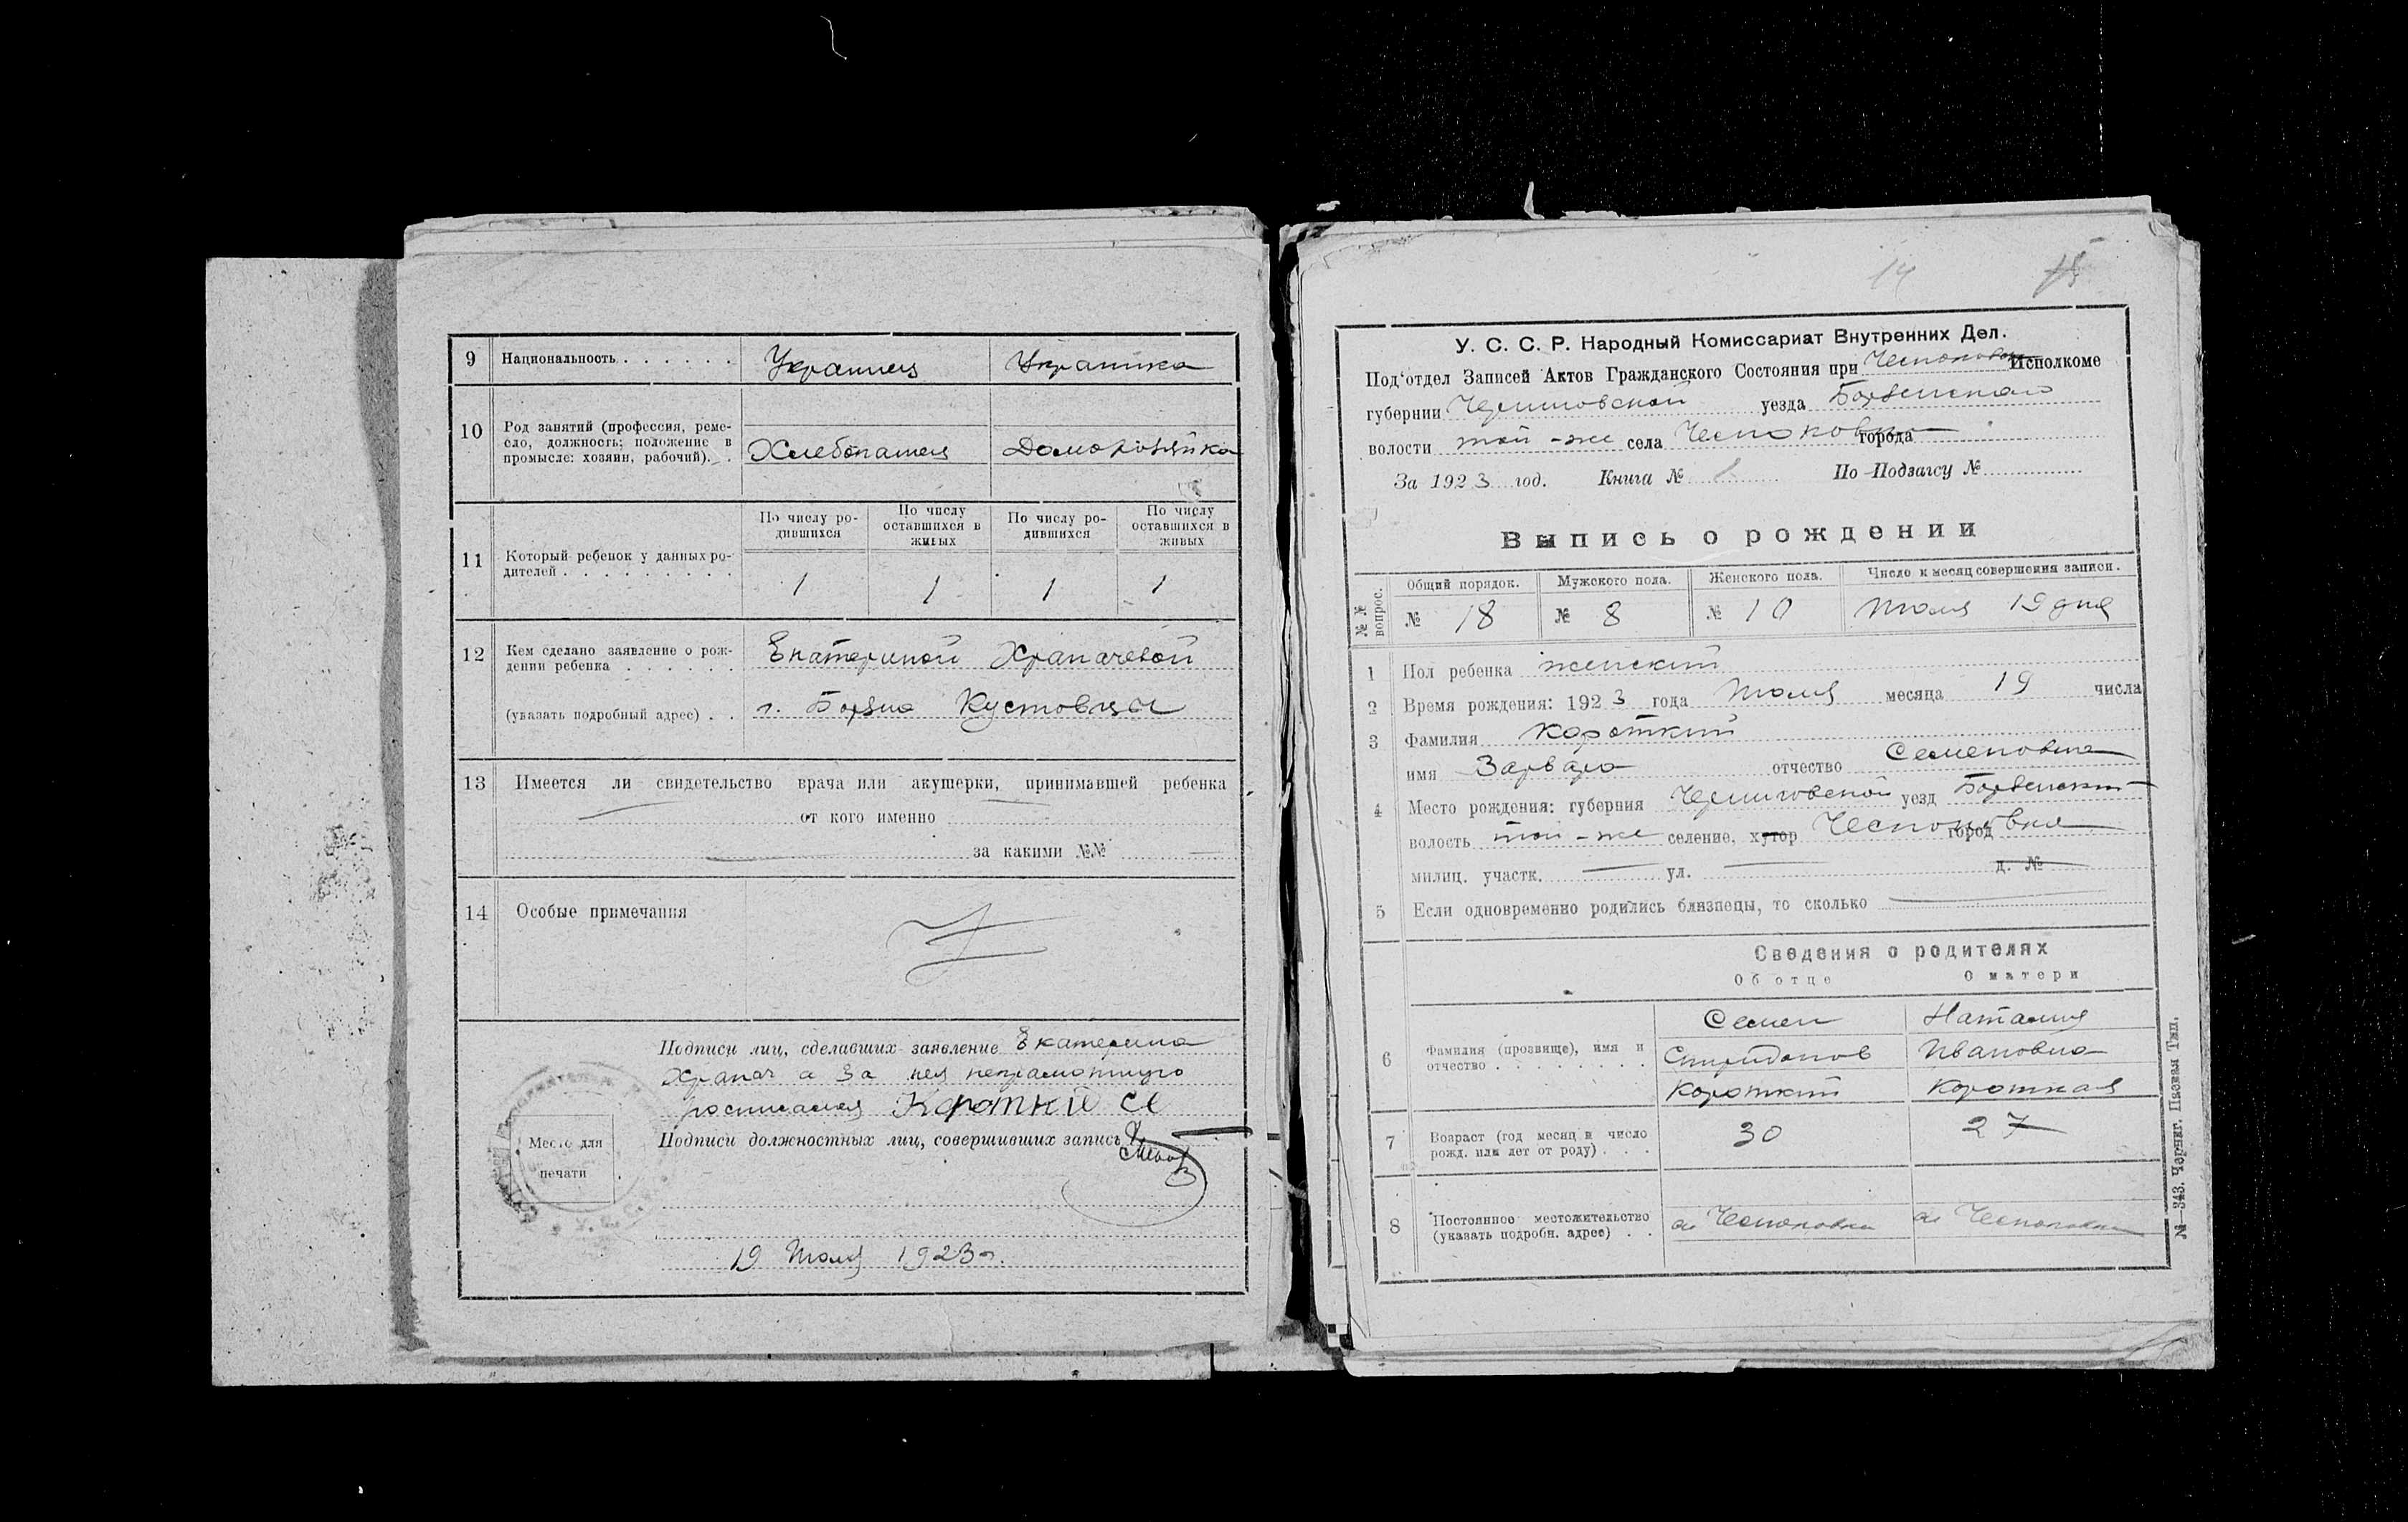 9 Национальность . . . . . . Украинец Украинка
10 Род занятий (профессия, реме-
сло, должность; положение в
промысле: хозяин, рабочий). . Хлебопашец Домохозяйка
По числу ро-
дившихся
По числу
оставшихся в
живых
По числу ро-
дившихся
По числу
оставшихся в
живых
11 Который ребенок у данных ро-
дителей . . . . . . . . . 1 1 1 1
12 Кем сделано заявление о рож-
дении ребенка . . . . . . Екатериной Храпачевой
(указать подробный адрес) . . г. Борзна Кустовцы
13 Имеется ли свидетельство врача или акушерки, принимавшей ребенка
от кого именно
за какими №№
14 Особые примечания
Подписи лиц, сделавших заявление Екатерина
Храпач а за нея неграмотную
росписался Короткій С
Подписи должностных лиц, совершивших запись
Место для
печати
19 Июля 1923 г.
14 15
У. С. С. Р. Народный Комиссариат Внутренних Дел.
Под'отдел Записей Актов Гражданского Состояния при Чесноковск Исполкоме
губернии Черниговской уезда Борзенского
волости той-же села Чесноковка города
За 1923 год. Книга № 1 По Подзагсу №
Выпись о рождении
№№ вопрос.
Общий порядок. Мужского пола. Женского пола. Число и месяц совершения записи.
№ 18 № 8 № 10 Июля 19 дня
1 Пол ребенка женский
2 Время рождения: 1923 года Июля месяца 19 числа
3 Фамилия Короткий
имя Варвара отчество Семеновна
4 Место рождения: губерния Черниговской уезд Борзенский
волость той-же селение, хутор Чесноковка город
милиц. участк. ул. д. №
5 Если одновременно родились близнецы, то сколько
Сведения о родителях
Об отце О матери
Семен Наталия
6 Фамилия (прозвище), имя и
отчество . . . . . . . . Спиридонов Ивановна
Короткий Короткая
7 Возраст (год месяц и число
рожд. или лет от роду) . . . 30 27
8 Постоянное местожительство
(указать подробн. адрес) . . с. Чесноковка с. Чесноковка
№—343. Черниг. Паевая Тип.